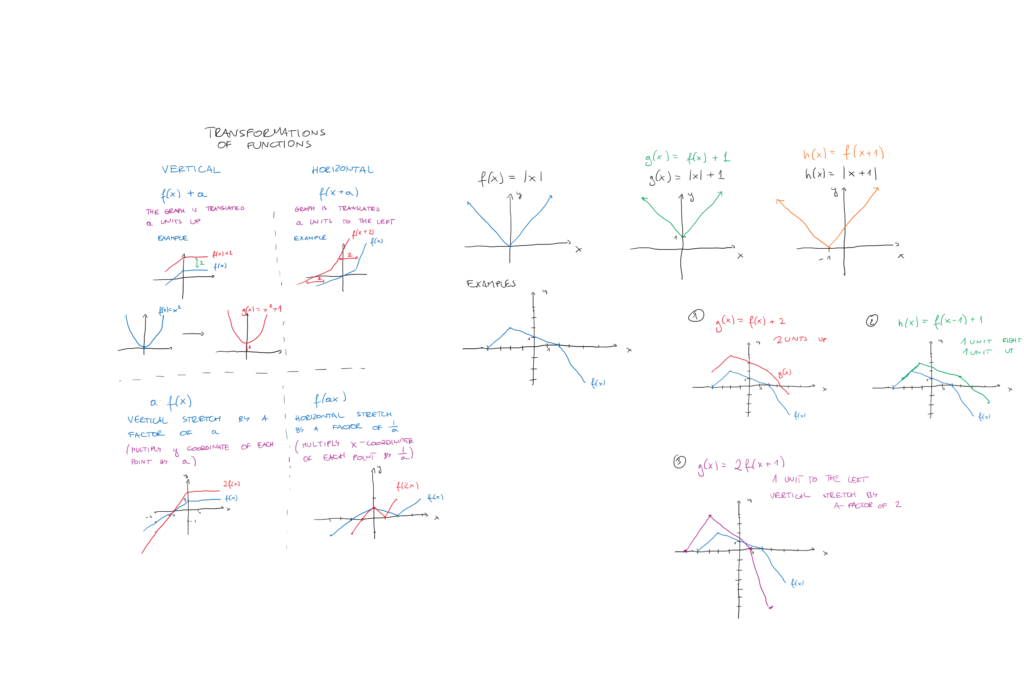 TRANSFORMATIONS
OF FUNCTIONS
VERTICAL
f(x) + a
THE GRAPH IS TRANSLATED
a UNITS UP
EXAMPLE
f(x)+2
2
f(x)
f(x)=x²
g(x)=x²+1
HORIZONTAL
f(x+a)
GRAPH IS TRANSLATED
a UNITS TO THE LEFT
EXAMPLE
f(x+2)
f(x)
2
2
a f(x)
VERTICAL STRETCH BY A
FACTOR OF a
(MULTIPLY y COORDINATE OF EACH
POINT BY a)
2f(x)
f(x)
x
f(ax)
HORIZONTAL STRETCH
BY A FACTOR OF 1/a
(MULTIPLY X-COORDINATE
OF EACH POINT BY 1/a)
y
f(2x)
f(x)
x
f(x) = |x|
y
x
g(x) = f(x) + 1
g(x) = |x| + 1
y
1
x
h(x) = f(x+1)
h(x) = |x+1|
y
-1
x
EXAMPLES
y
x
f(x)
1
g(x) = f(x) + 2
2 UNITS UP
g(x)
x
f(x)
2
h(x) = f(x-1) + 1
1 UNIT RIGHT
1 UNIT UP
x
f(x)
3
g(x) = 2f(x+1)
1 UNIT TO THE LEFT
VERTICAL STRETCH BY
A FACTOR OF 2
x
f(x)